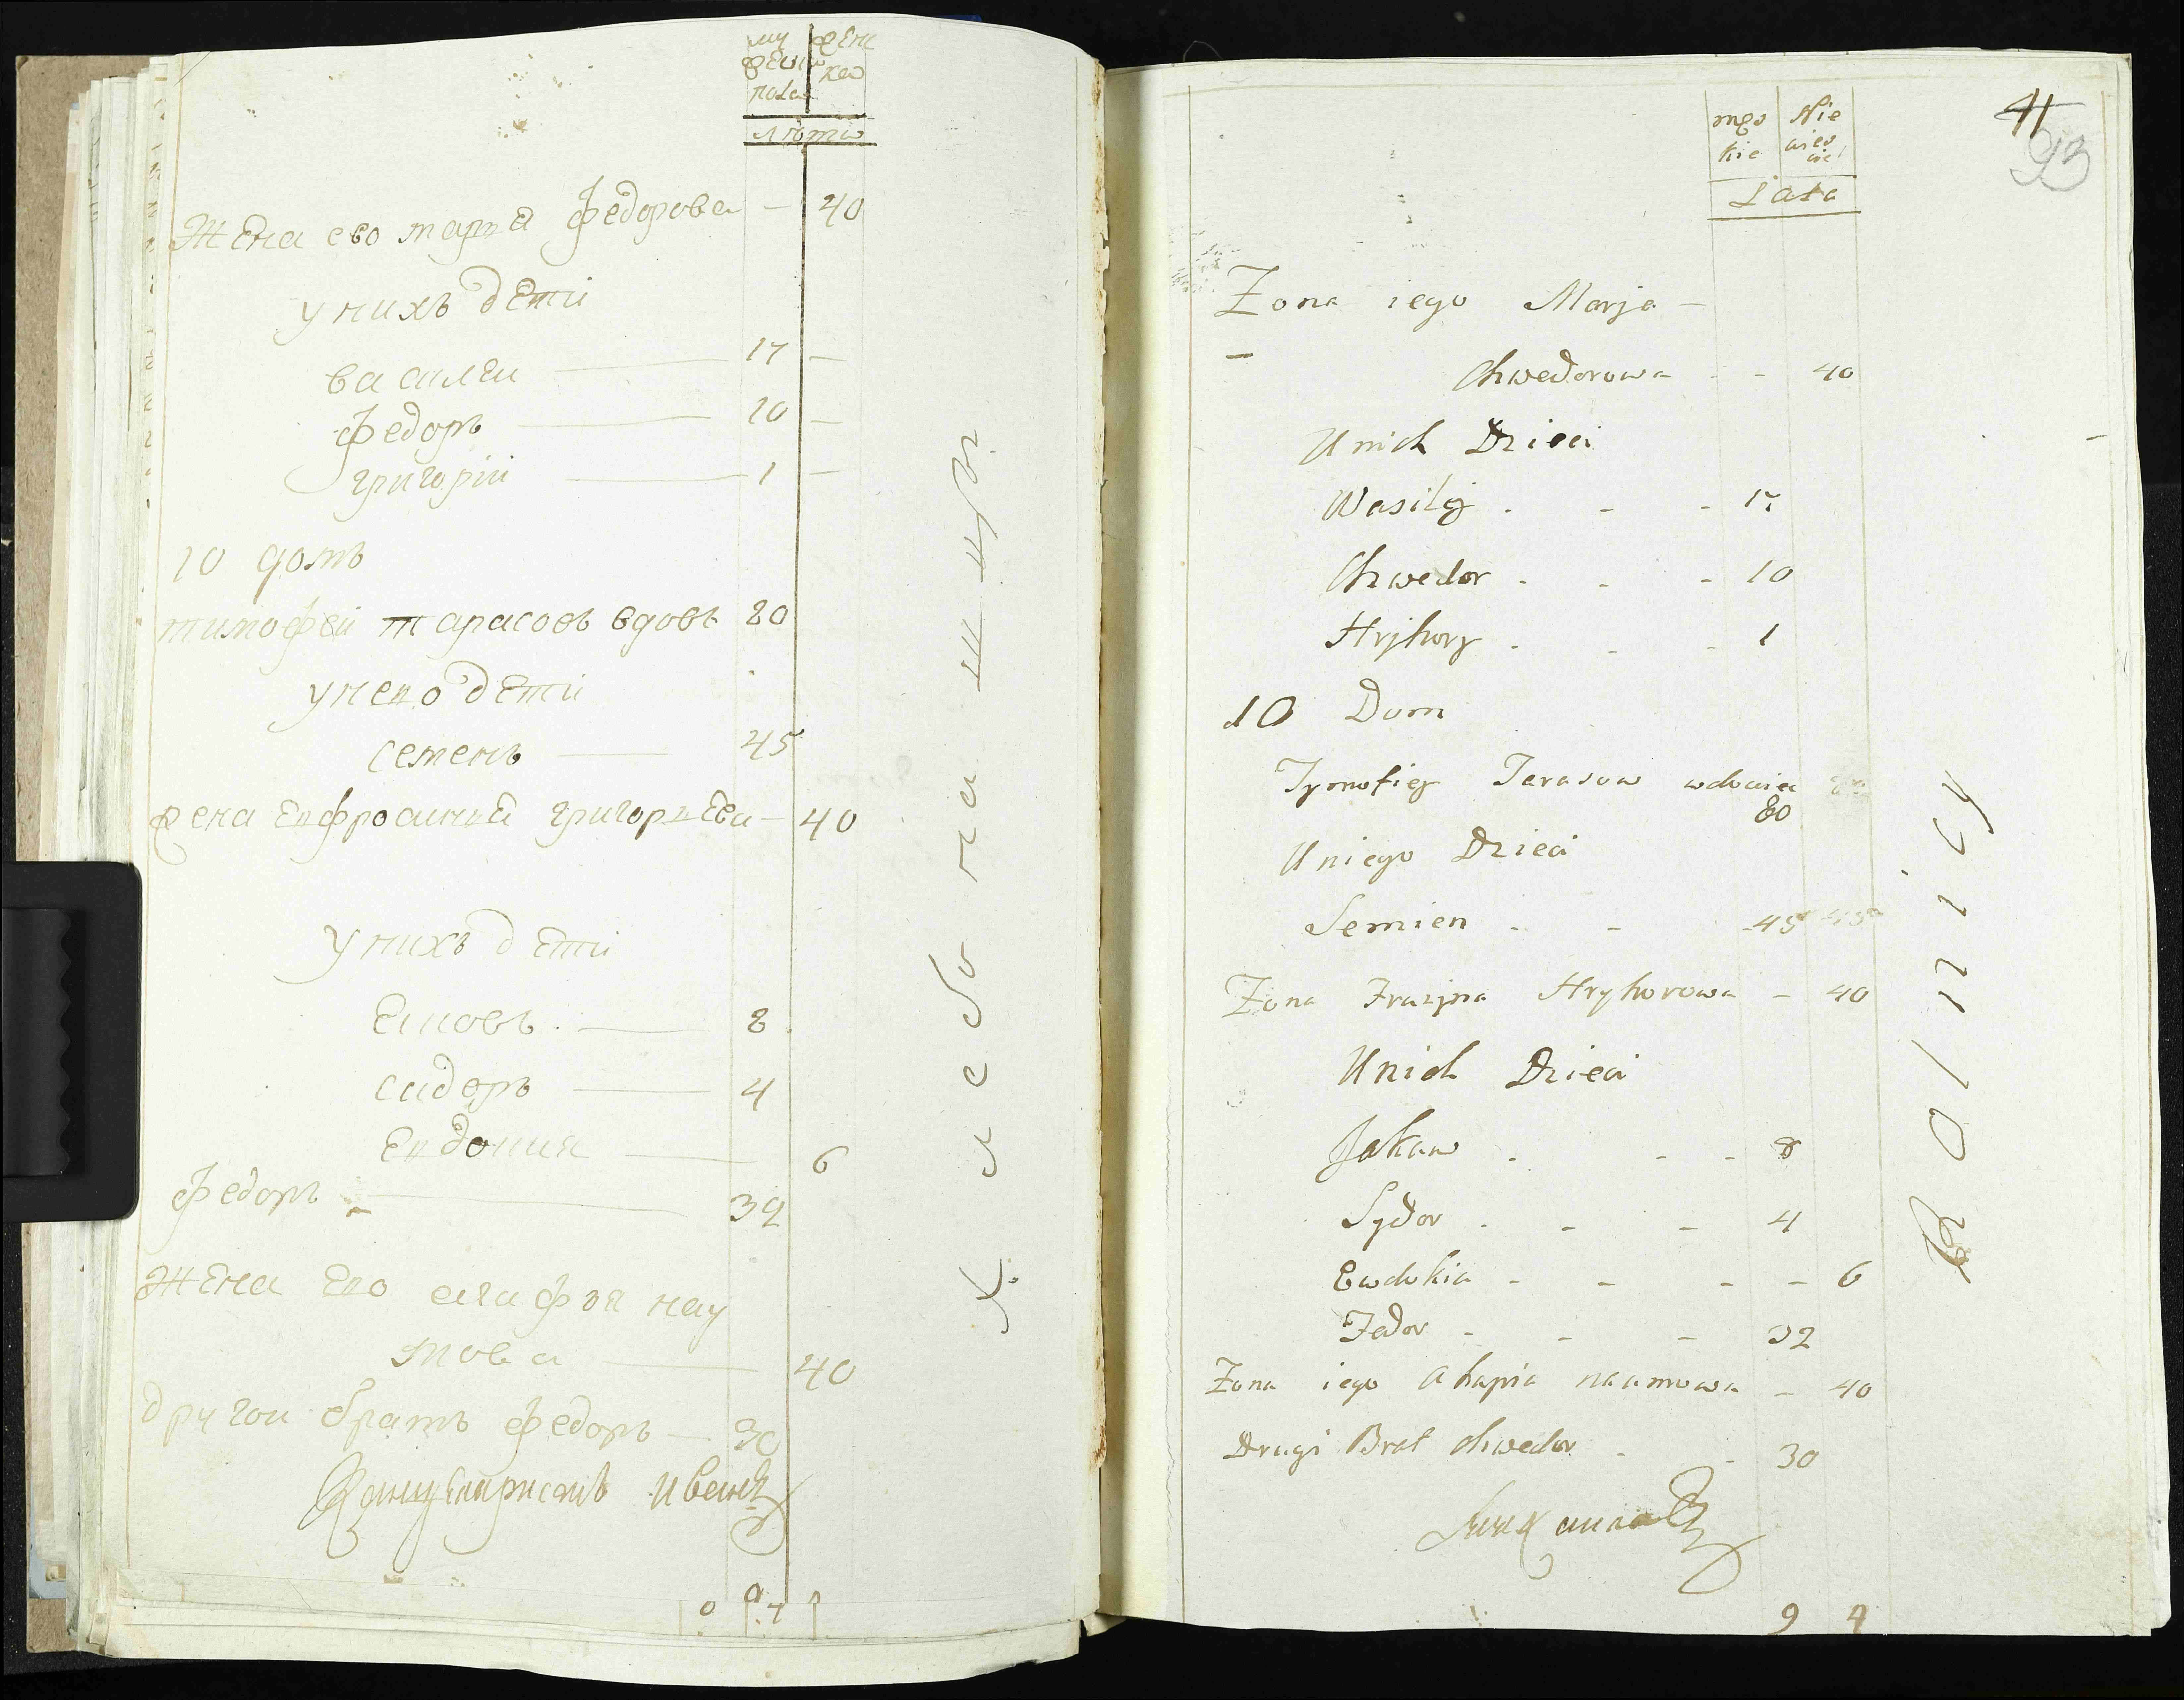 му жене
жеска ка
пола
лѣта
Жена ево марья федорова — 40
у нихъ дети
васили — 17 —
федоръ — 10 —
григорiи — 1 —
10 домъ
тимофеи тарасовъ вдовъ 80
у нево дети
семенъ — 45
жена евфросинья григорьева — 40
у нихъ дети
Ековъ — 8
сидоръ — 4
Евдокия — 6
федоръ — 32
Жена ево агафья нау
мова — 40
другои братъ федоръ — 30
Хлебопашцы
41
93
męs Nie
kie wies
cie
Lata
Zona iego Marja —
Chwedorowa - - 40
Unich Dzieci
Wasilÿ - - - 17
Chwedor - - - 10
Hryhory - - - 1
10 Dom
Tymofiey Tarasow wdowiec
80
Uniego Dzieci
Semien - - 45
Zona Frazyna Hryhorowa - 40
Unich Dzieci
Jakaw - - - 8
Sydor - - - 4
Ewdokia - - - - 6
Fedor - - - 32
Zona iego Ahapia naumowa - 40
Drugi Brat Chwedor - - 30
9 4
Rolnicy